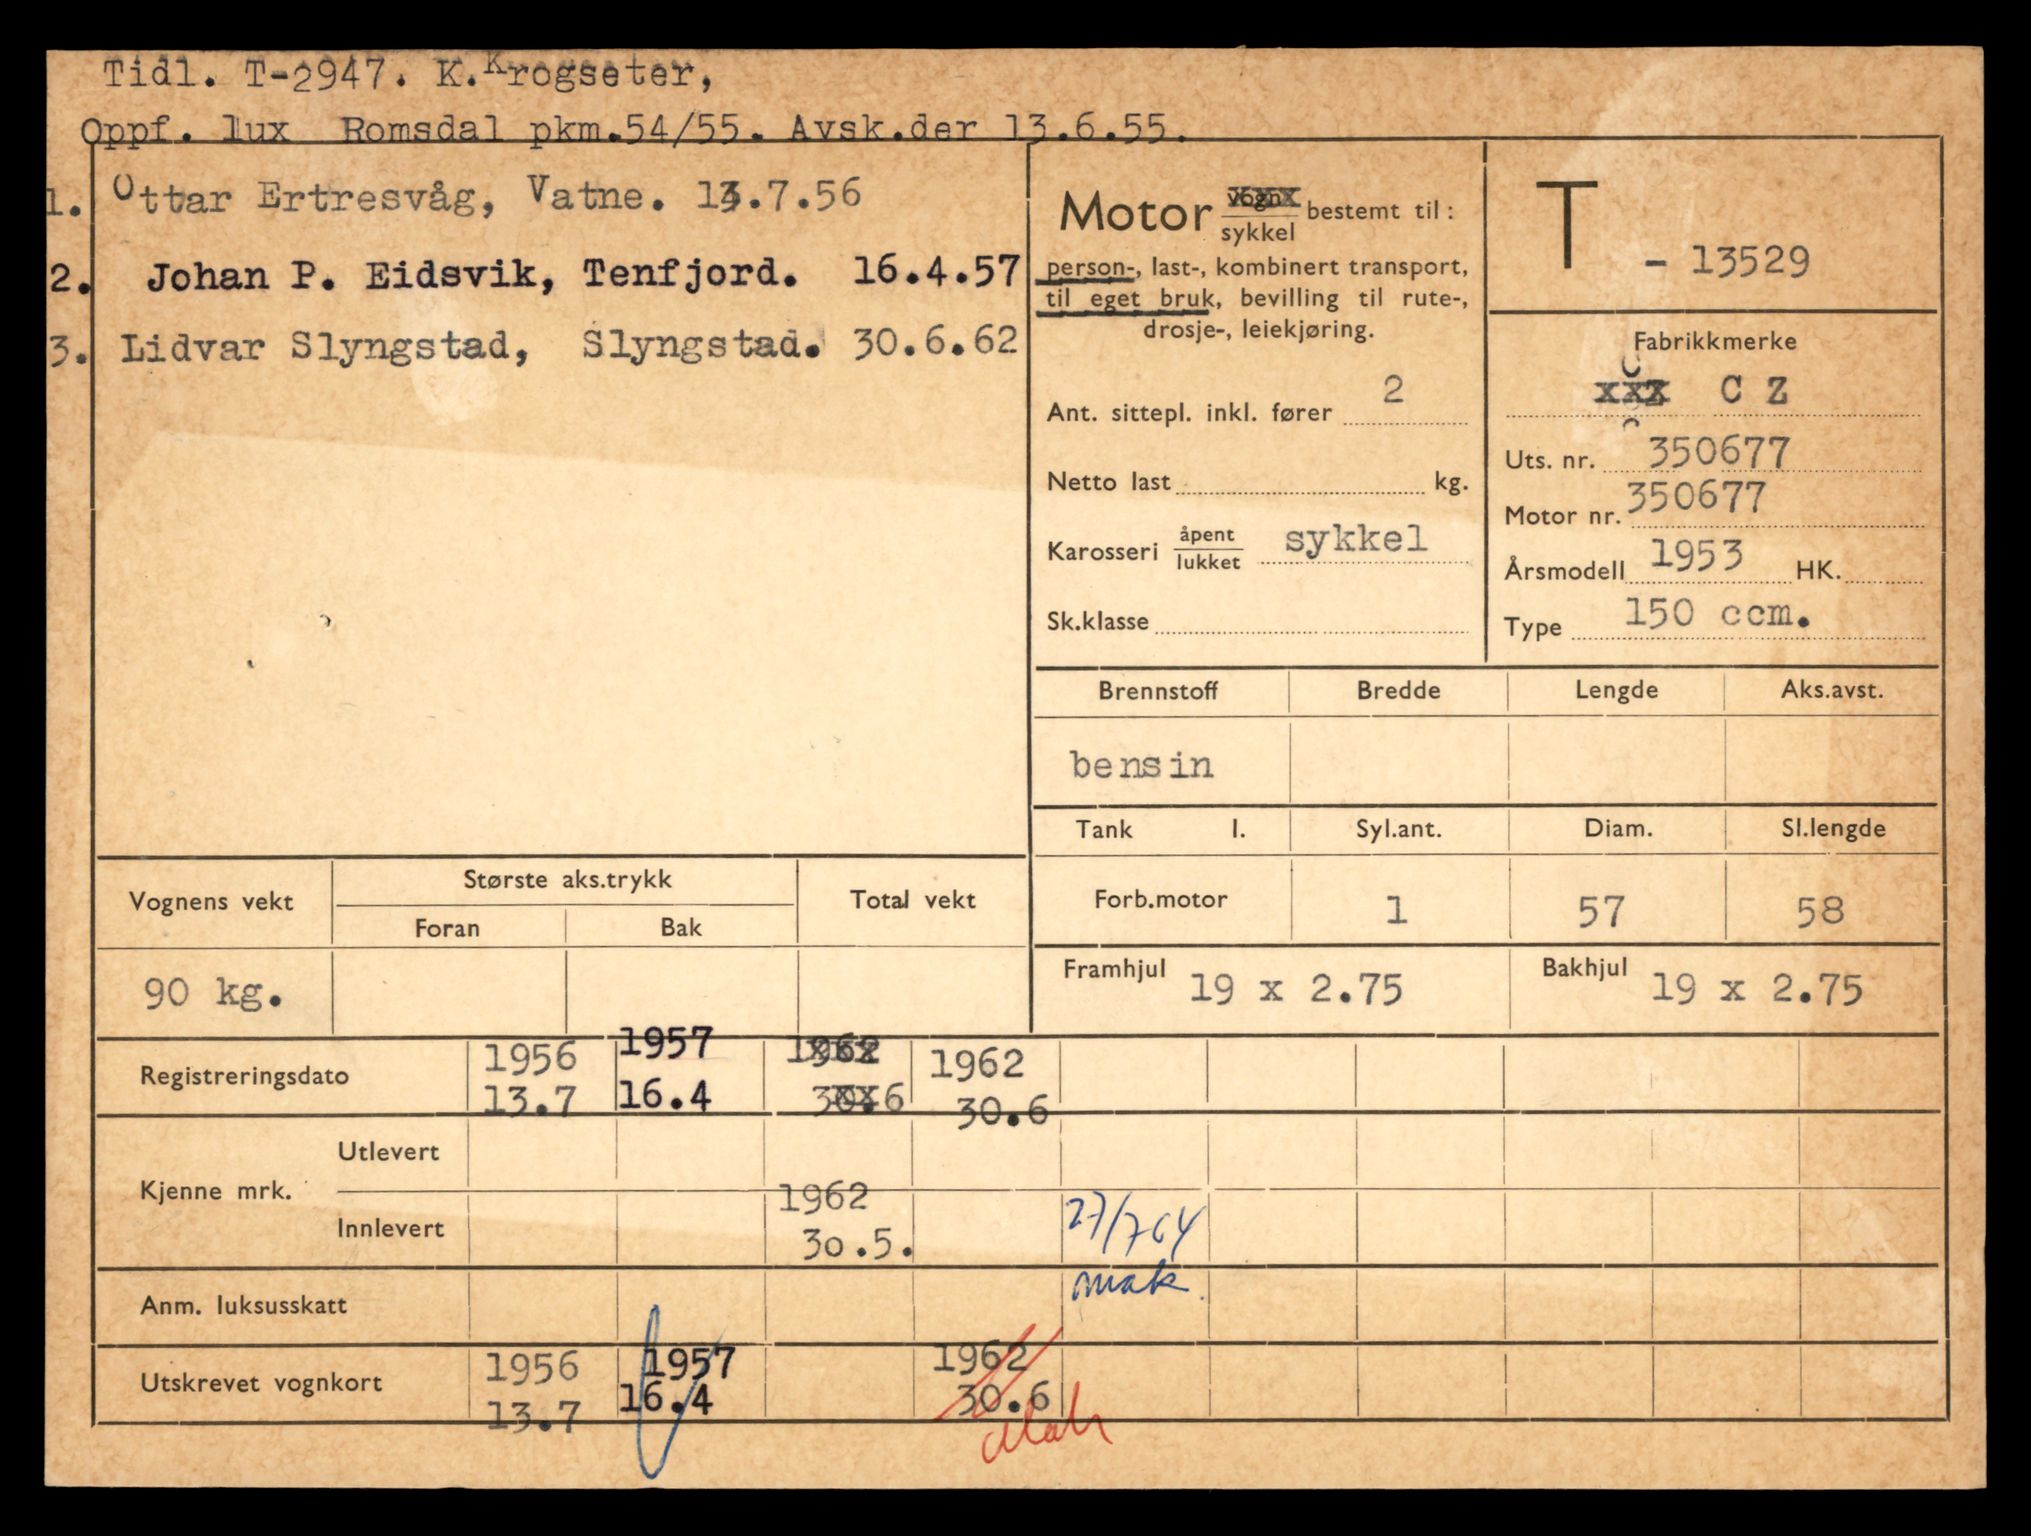 Tidl. T-2947. K. Krogseter,
Oppf. lux Romsdal pkm.54/55. Avsk.der 13.6.55.
1. Ottar Ertresvåg, Vatne. 13.7.56
2. Johan P. Eidsvik, Tenfjord. 16.4.57
3. Lidvar Slyngstad, Slyngstad. 30.6.62
Motor vogn sykkel bestemt til:
person-, last-, kombinert transport,
til eget bruk, bevilling til rute-,
drosje-, leiekjøring.
Ant. sittepl. inkl. fører 2
Netto last kg.
Karosseri åpent lukket sykkel
Sk.klasse
T - 13529
Fabrikkmerke
C Z
Uts. nr. 350677
Motor nr. 350677
Årsmodell 1953 HK.
Type 150 ccm.
Brennstoff Bredde Lengde Aks.avst.
bensin
Tank l. Syl.ant. Diam. Sl.lengde
Forb.motor 1 57 58
Framhjul 19 x 2.75 Bakhjul 19 x 2.75
Vognens vekt Største aks.trykk Total vekt
Foran Bak
90 kg.
Registreringsdato 1956 1957 1962 1962
13.7 16.4 30.6 30.6
Kjenne mrk.
Utlevert
Innlevert 1962 27/7 64
30.5. mak.
Anm. luksusskatt
Utskrevet vognkort 1956 1957 1962
13.7 16.4 30.6
Mak